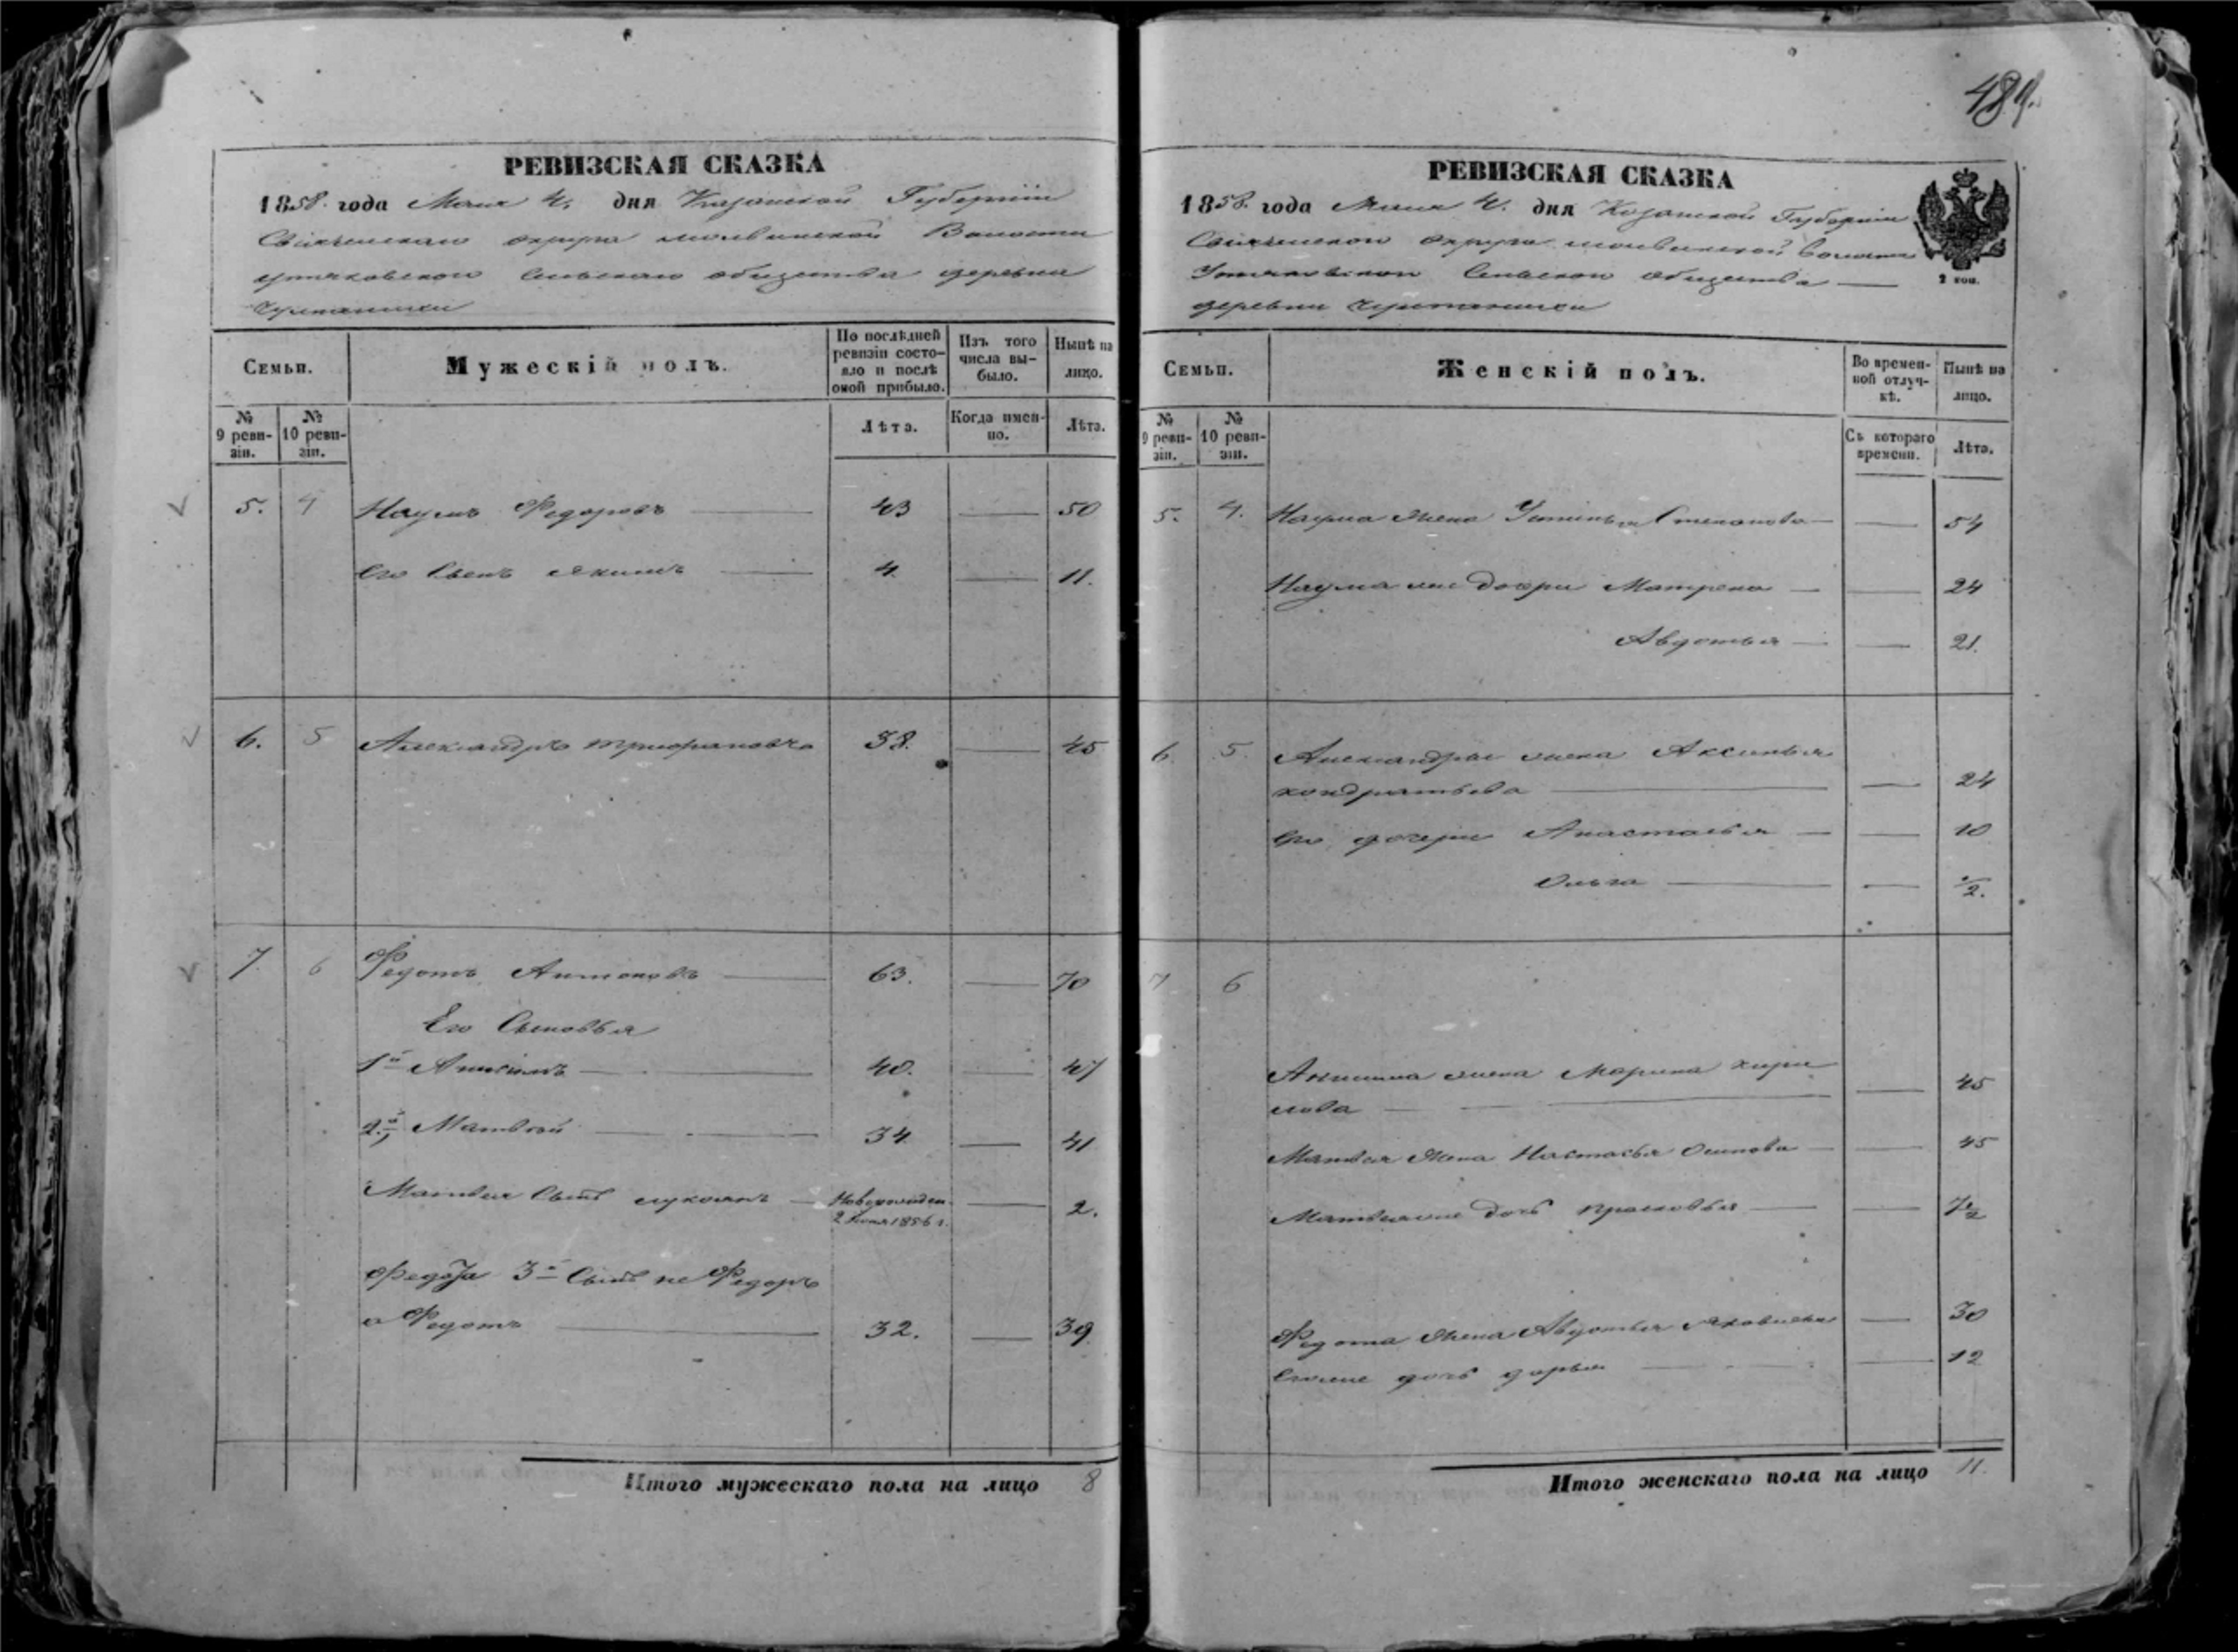 489.
РЕВИЗСКАЯ СКАЗКА
1858. года Маия 4. дня Казанской Губернии
Свіяжскаго округа молвинской Волости
утяковскаго Сельскаго общества деревни
Семьи.
Мужескій полъ.
По послѣдней ревизіи состо-яло и послѣ оной прибыло.
Изъ того числа вы-было.
Нынѣ на лицо.
№ 9 реви-зіи.
№ 10 реви-зіи.
Лѣта.
Когда имен-но.
Лѣта.
5. 4 Наумъ Федоровъ 43 50
Его Сынъ Якимъ 4. 11.
6. 5 Александръ Трифоновъ 38. 45
7. 6 Федотъ Антоновъ 63. 70
Его Сыновья
1й Анисимъ 40. 47
2й Матвѣй 34 41
Матвея Сынъ лукоянъ Новорожден. 2.
2 1856 г.
Федота 3й Сынъ не Федоръ
а Федотъ 32. 39.
Итого мужескаго пола на лицо 8
РЕВИЗСКАЯ СКАЗКА
1858. года Маия 4. дня Казанской Губернии
Свіяжскаго округа молвинской волости
Утяковскаго Сельскаго общества
деревни
2 коп.
Семьи.
Женскій полъ.
Во времен-ной отлуч-кѣ.
Нынѣ на лицо.
№ 9 реви-зіи.
№ 10 реви-зіи.
Съ котораго времени.
Лѣта.
5. 4. Наума жена Устинья Степанова 54
Наума же дочери Матрена 24
Авдотья 21.
6. 5. Александры жена Аксинья
кондратьева 24
Его дочери Анастасья 10
Ольга 1/2.
7 6
Анисима жена Марина кири
лова 45
Матвея жена Настасья Осипова 45
Матвея же дочь прасковья 7 1/2
Федота жена Авдотья яковлева 30
Его же дочь дарья 12
Итого женскаго пола на лицо 11.